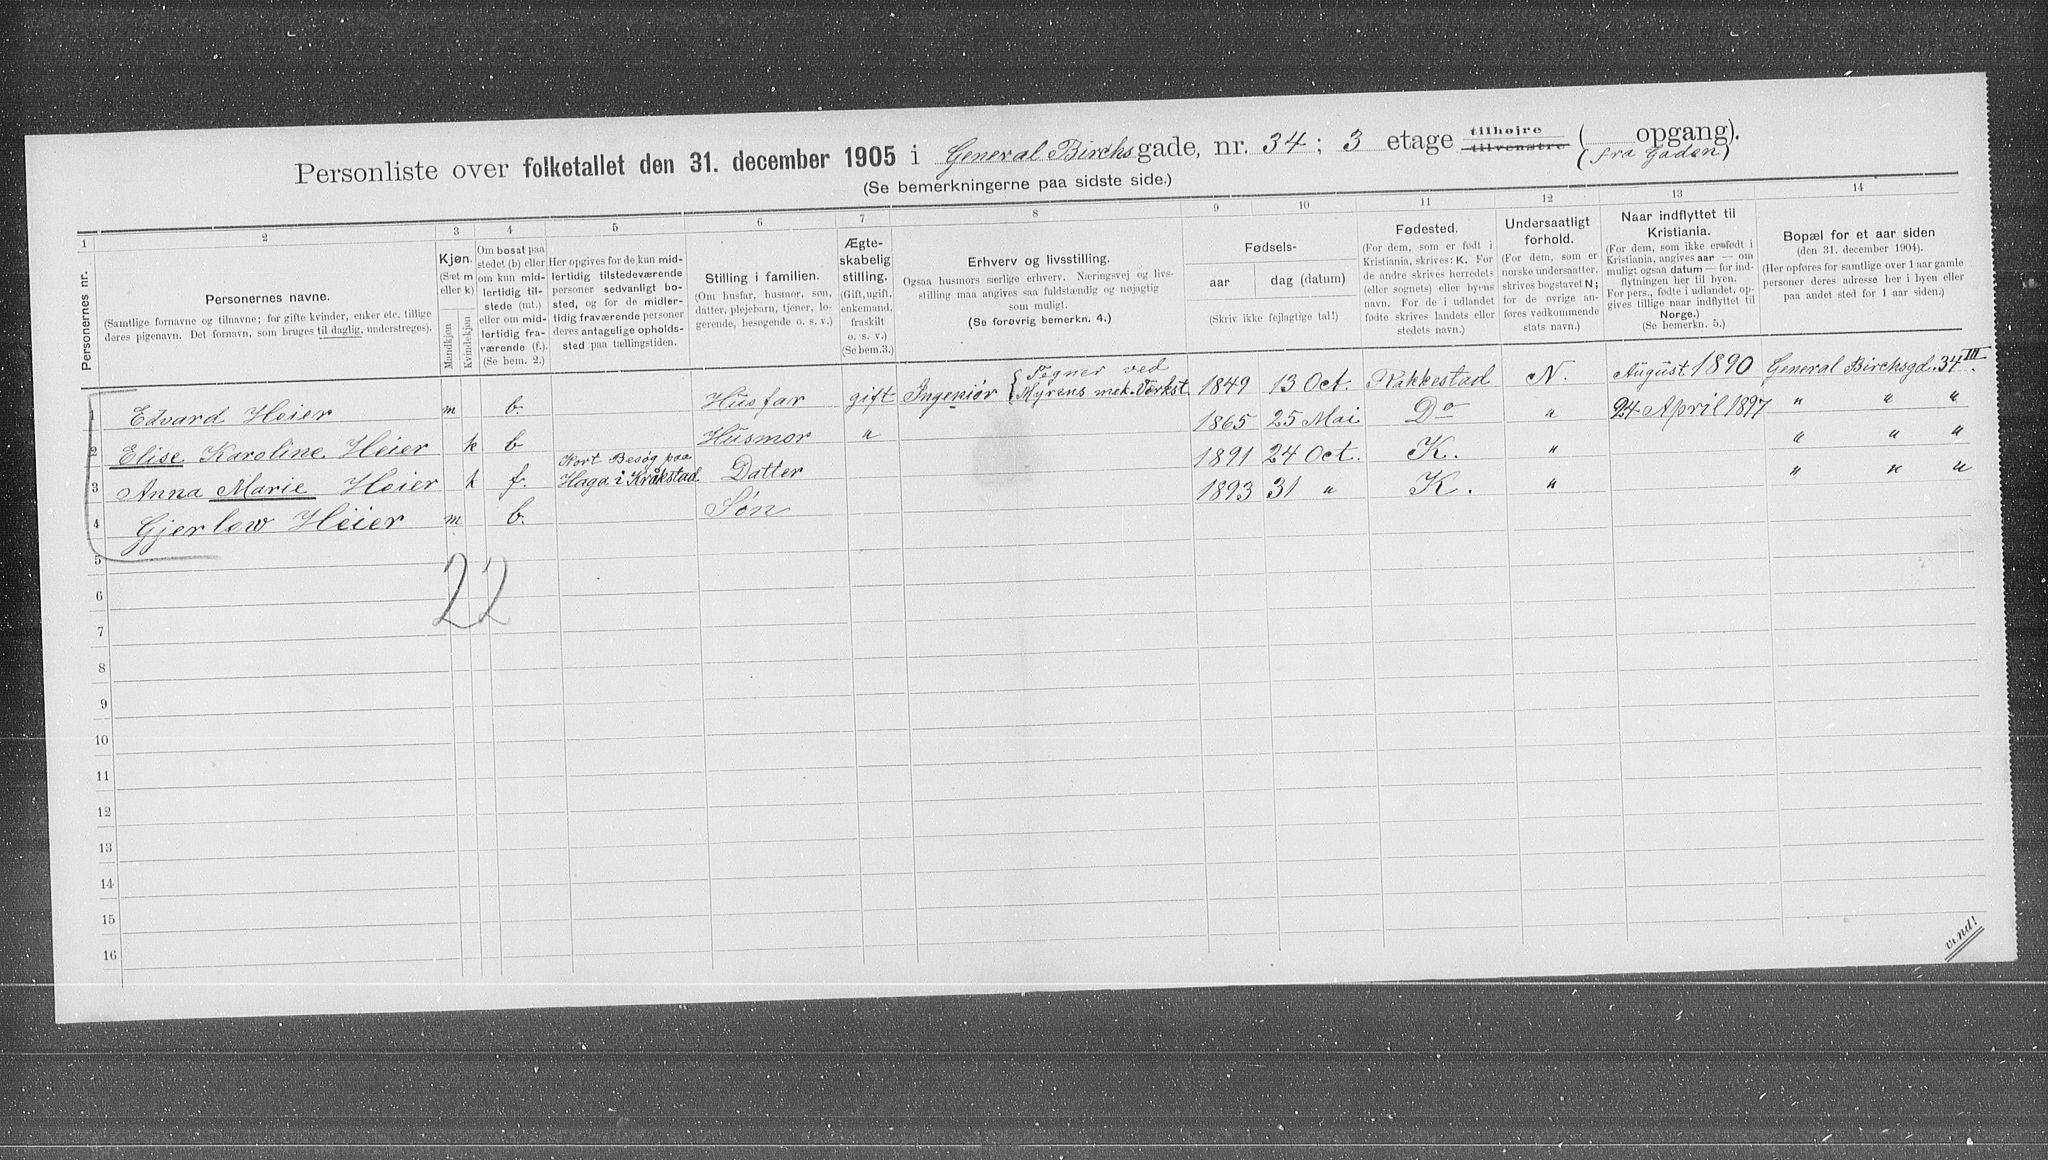 Personliste over folketallet den 31. december 1905 i General Birchsgade, nr. 34; 3 etage tilhøjre tilvenstre ( opgang).
(fra Gaden)
(Se bemerkningerne paa sidste side.)
1 2 3 4 5 6 7 8 9 10 11 12 13 14
Personernes nr.
Personernes navne.
(Samtlige fornavne og tilnavne; for gifte kvinder, enker etc. tillige
deres pigenavn. Det fornavn, som bruges til daglig, understreges).
Kjøn.
(Sæt m
eller k)
Mandkjøn
Kvindekjøn
Om bosat paa
stedet (b) eller
om kun mid-
lertidig til-
stede (mt.)
eller om mid-
lertidig fra-
værende (f.)
(Se bem. 2.)
Her opgives for de kun mid-
lertidig tilstedeværende
personer sedvanligt bo-
sted, og for de midler-
tidig fraværende personer
deres antagelige opholds-
sted paa tællingstiden.
Stilling i familien.
(Om husfar, husmor, søn,
datter, plejebarn, tjener, lo-
gerende, besøgende o. s. v.)
Ægte-
skabelig
stilling.
(Gift, ugift,
enkemand,
fraskilt
o. s. v.)
(Se bem.3.)
Erhverv og livsstilling.
Ogsaa husmors særlige erhverv. Næringsvej og livs-
stilling maa angives saa fuldstændig og nøjagtig
som muligt.
(Se forøvrig bemerkn. 4.)
Fødsels-
aar
dag (datum)
(Skriv ikke fejlagtige tal!)
Fødested.
(For dem, som er født i
Kristiania, skrives: K. For
de andre skrives herredets
(eller sognets) eller byens
navn. For de i udlandet
fødte skrives landets eller
stedets navn.)
Undersaatligt
forhold.
(For dem, som er
norske undersaatter,
skrives bogstavet N;
for de øvrige an-
føres vedkommende
stats navn.)
Naar indflyttet til
Kristiania.
(For dem, som ikke er født i
Kristiania, angives aar — om
muligt ogsaa datum — for ind-
flytningen her til byen.
For pers., fødte i udlandet, op-
gives tillige naar indflyttet til
Norge.)
(Se bemerkn. 5.)
Bopæl for et aar siden
(den 31. december 1904).
(Her opføres for samtlige over 1 aar gamle
personer deres adresse her i byen eller
paa andet sted for 1 aar siden.)
1 Edvard Heier m b. Husfar gift Ingeniør { Tegner ved Myrens mek. Værkst. 1849 13 Oct. Rakkestad N. August 1890 General Birchsgd. 34 III.
2 Elise Karoline Heier k b Husmor " 1865 25 Mai Do " 24 April 1897 " " "
3 Anna Marie Heier k f. Kort Besøg paa Haga i Kråkstad Datter 1891 24 Oct. K. " " " "
4 Gjerlow Heier m b. Søn 1893 31 " K. " " " "
5
22
6
7
8
9
10
11
12
13
14
15
16
vend!